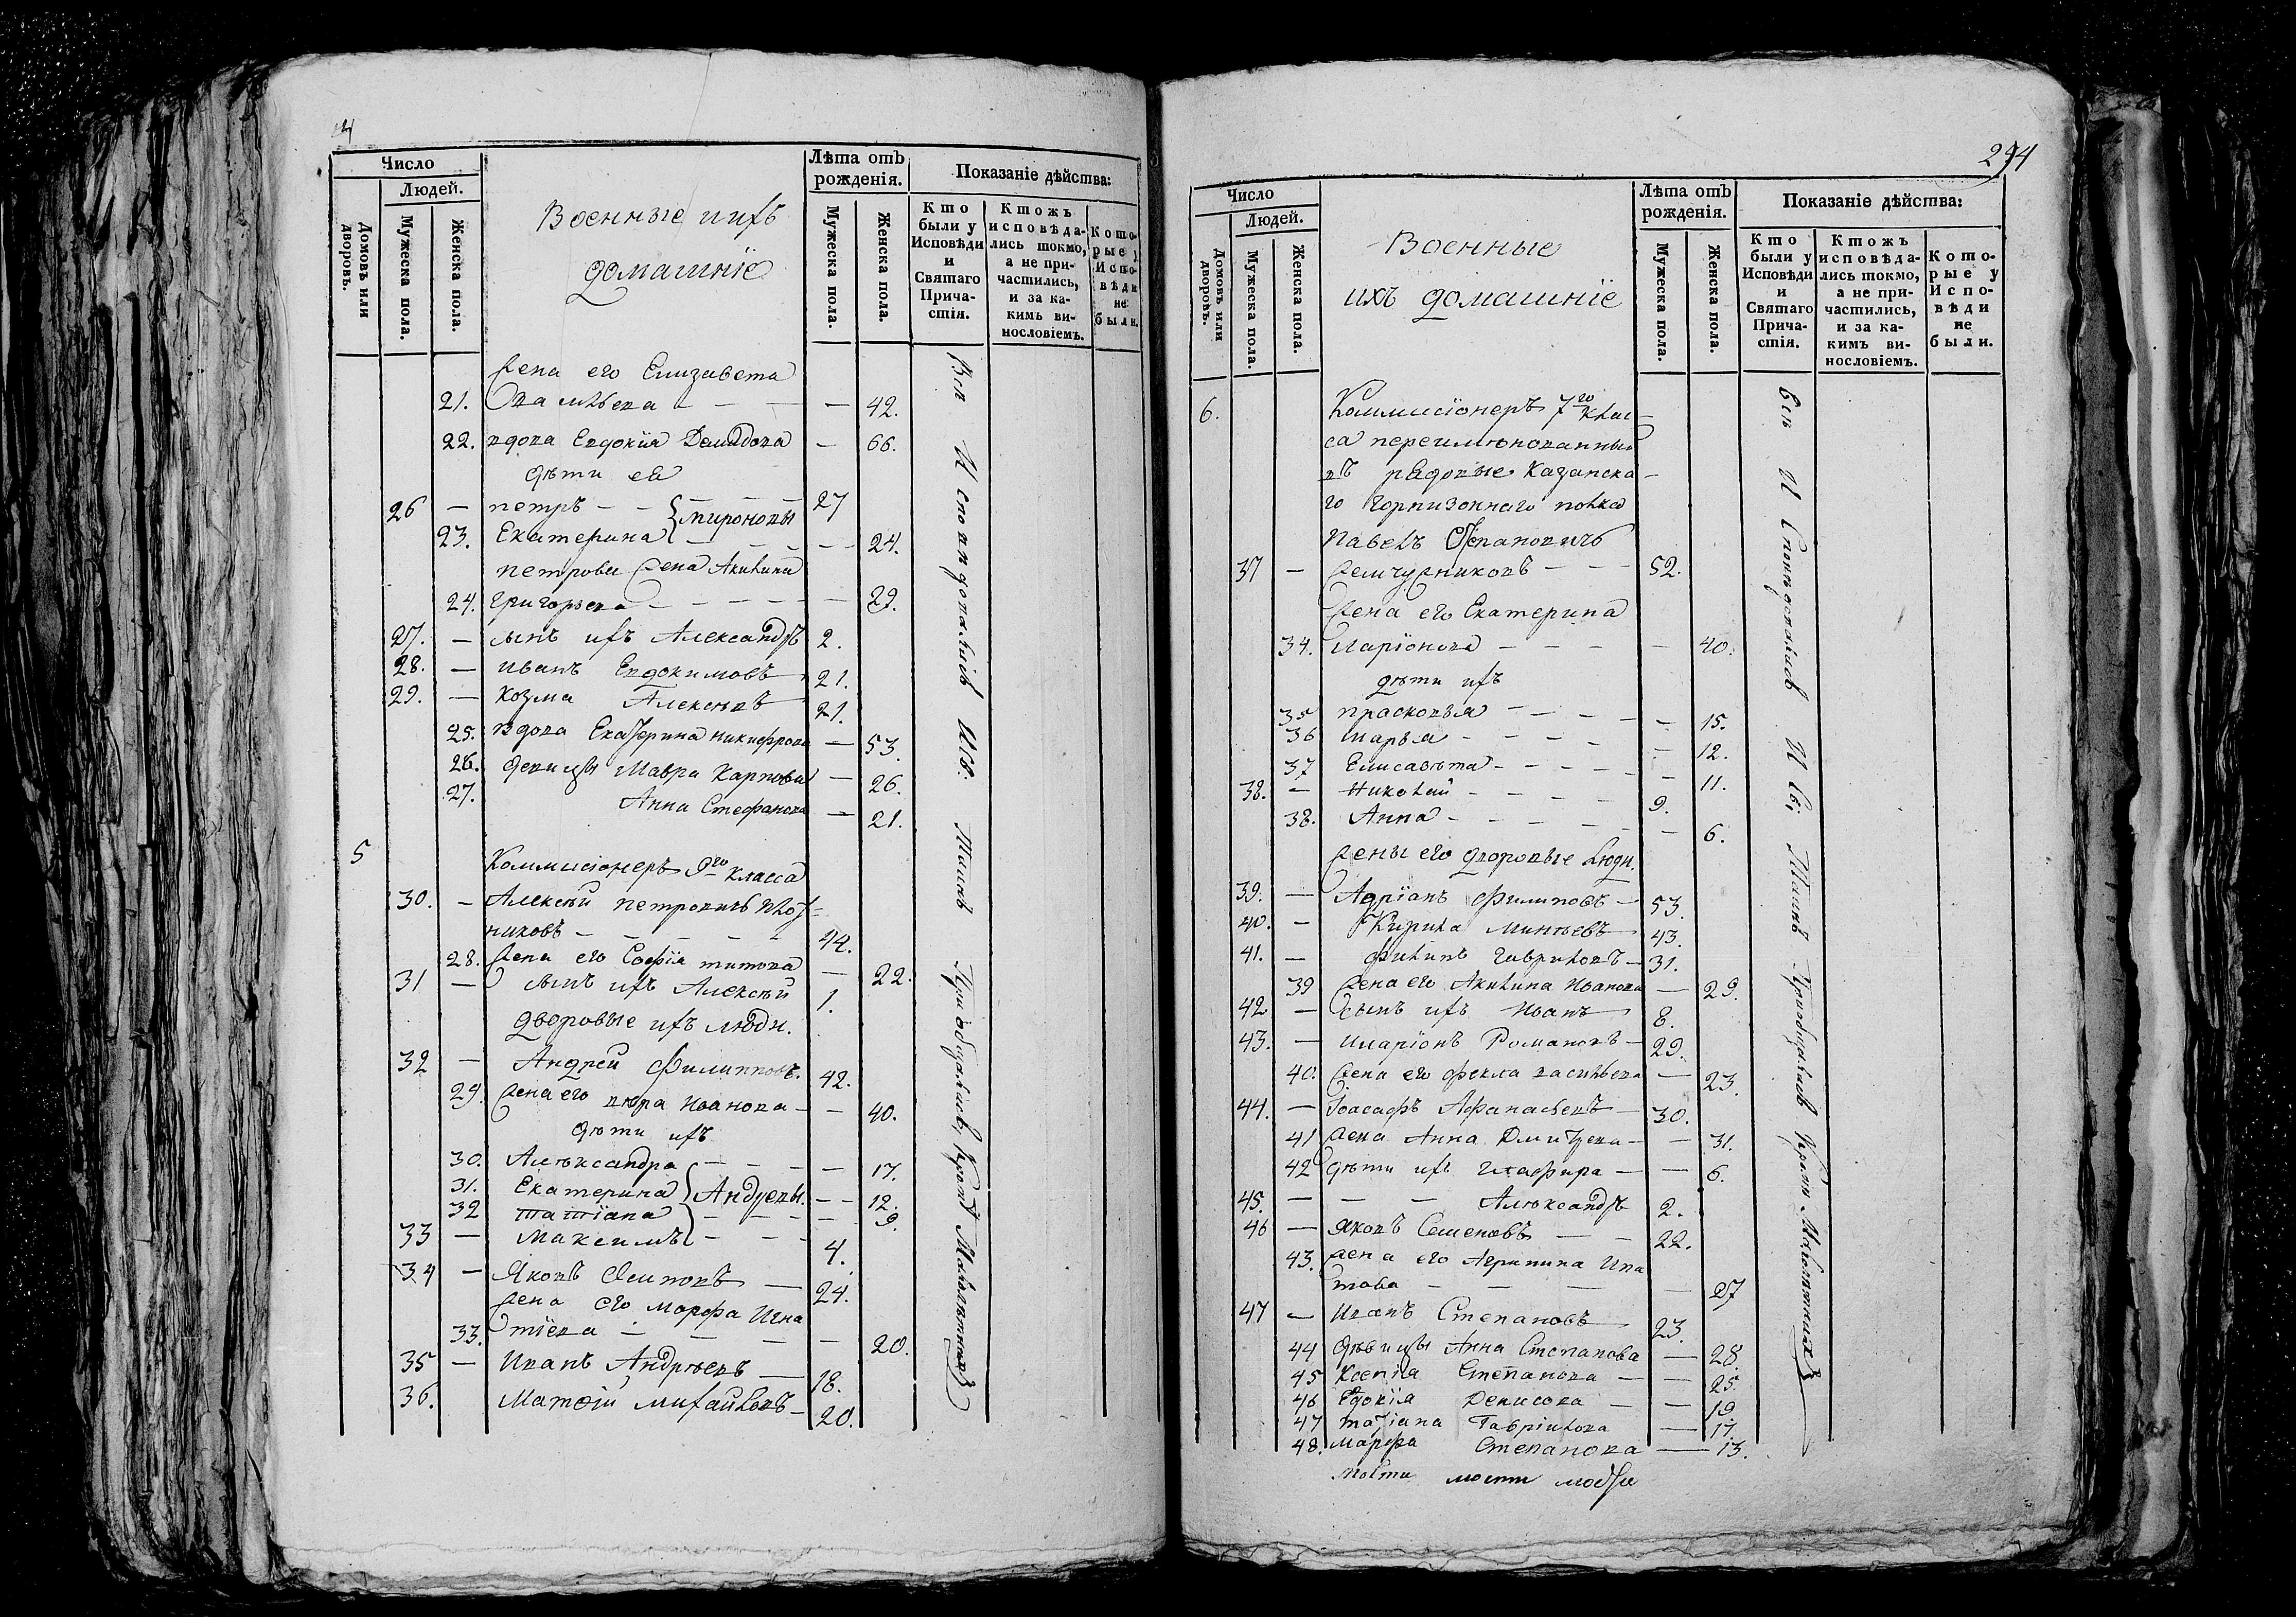 294
Число
Людей.
Домовъ или дворовъ.
Мужеска пола.
Женска пола.
Военные ихъ
домашнїе
Лѣта отъ рожденія.
Мужеска пола.
Женска пола.
Показаніе дѣйства:
Кто были у Исповѣди и Святаго Прича-стія.
Ктожъ исповѣда-лись токмо, а не при-частились, и за ка-кимъ ви-нословіемъ.
Кото-рые у Испо-вѣди не были.
жена его Елизавета
21. — 42.
22. вдова Евдокїя Демидова — 66.
дѣти ея
26 — петръ — — 27
Мироновы
23. Екатерина — — 24.
петрова жена Акилина
24. григорьева — — — 29.
27. — сынъ ихъ Александръ 2.
28. — иванъ Евдокимовъ 21.
29. — козма Алексѣевъ 21.
25. вдова Екатерина никифорова — 53.
26. девицы Мавра Карпова — 26.
27. Анна Стефанова — 21.
5 Коммисіонеръ 9го класса
30. — Алексѣй петровичь
никовъ — — — 44.
28. жена его Софїя титова — 22.
31 — сынъ ихъ Алексѣй 1.
дворовые ихъ люди.
32 — Андрей Филипповъ. 42.
29. жена его вѣра Иванова — — 40.
дѣти ихъ
30. Алѣксандра — — — 17.
31. Екатерина Андреевы. — — 12.
32 татїана — — — 9.
33 — Максимъ — — 4.
34 — Яковъ Осиповъ — 24.
жена его марфа Игна
33. тїева — — — 20.
35 — Иванъ Андрѣевъ — 18.
36. Матѳій михайловъ — 20.
Вси Исповѣдовались И Св. Таинъ Приобщались, Кромѣ Малолѣтнихъ
Число
Людей.
Домовъ или дворовъ.
Мужеска пола.
Женска пола.
Военные
ихъ домашнїе
Лѣта отъ рожденія.
Мужеска пола.
Женска пола.
Показаніе дѣйства:
Кто были у Исповѣди и Святаго Прича-стія.
Ктожъ исповѣда-лись токмо, а не при-частились, и за ка-кимъ ви-нословіемъ.
Кото-рые у Испо-вѣди не были.
6. Коммисїонеръ 7го клас-
са переимѣнованный
въ рядовые Казанска-
го горнизоннаго полка
Павелъ Степановичь
37 — Жемчужниковъ — — 52.
жена его Екатерина
34. Иларїонова — — — 40.
дѣти ихъ
35 прасковья — — — 15.
36 марья — — — 12.
37 Елисавѣта — — — 11.
38. — Николай — — — 9.
38. Анна — — — 6.
жены его дворовые люди.
39. — Адрїанъ Филиповъ — 53.
40. — Кирила Минѣевъ 43.
41. — Филипъ Гавриловъ — 31.
39 жена его Акилина Иванова — 29.
42 — сынъ ихъ Иванъ 8.
43. — Иларїонъ Романовъ — 29.
40. жена его Фекла васильева — 23.
44. — Іоасафъ Афанасьевъ — 30.
41 жена Анна Дмитрева — — 31.
42 дѣти ихъ глафира — — 6.
45. — — — Алѣксандръ 2.
46 — Яковъ Семеновъ — — 22.
43. жена его Агрипина Ипа
това — — — 27
47 — Иванъ Степановъ 23.
44 дѣвицы Анна Степанова — 28.
45 Ксенїя Степанова — — 25.
46 Евдокїя Денисова — — 19
47 татїана Гаврїилова — 17.
48. марфа Степанова — 13.
Вси Исповѣдовались И Св. Таинъ Приобщались Кромѣ Малолѣтнихъ